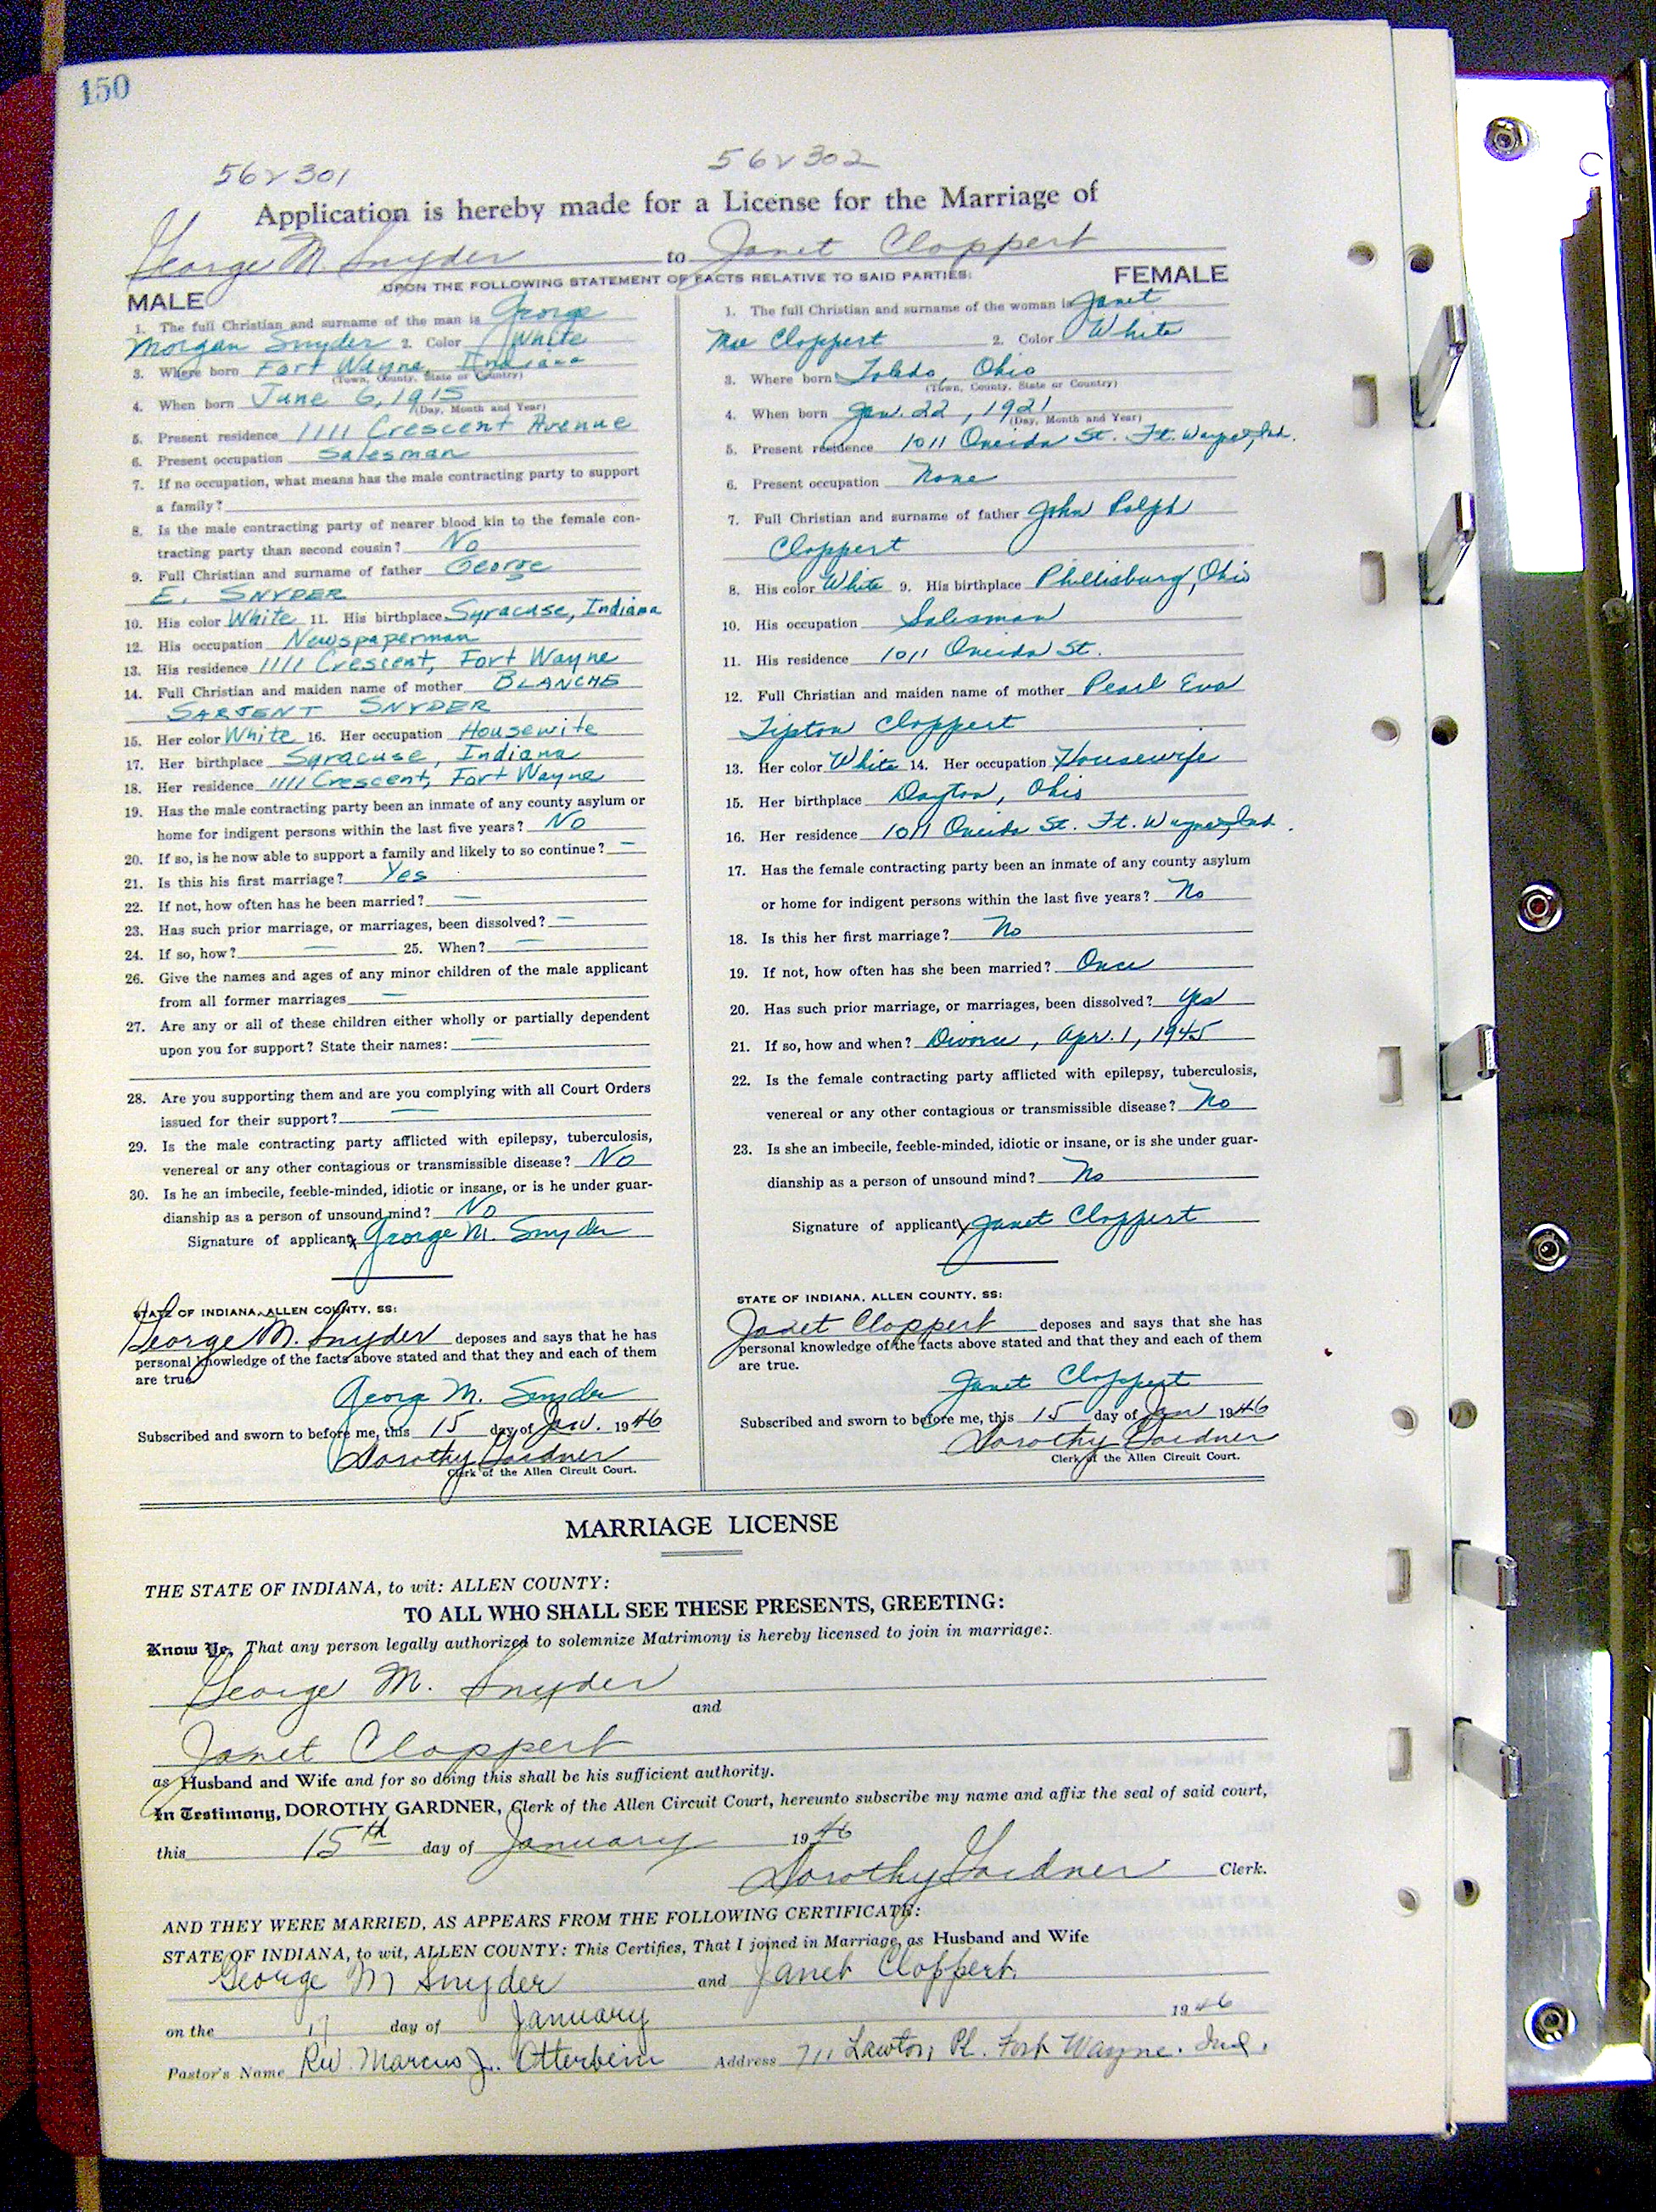 150
56 v 301
56 v 302
Application is hereby made for a License for the Marriage of
George M. Snyder to Janet Cloppert
UPON THE FOLLOWING STATEMENT OF FACTS RELATIVE TO SAID PARTIES:
MALE
1. The full Christian and surname of the man is George
Morgan Snyder 2. Color White
3. Where born Fort Wayne, Indiana
(Town, County, State or Country)
4. When born June 6, 1915
(Day, Month and Year)
5. Present residence 1111 Crescent Avenue
6. Present occupation Salesman
7. If no occupation, what means has the male contracting party to support
a family?
8. Is the male contracting party of nearer blood kin to the female con-
tracting party than second cousin? No
9. Full Christian and surname of father George
E. SNYDER
10. His color White 11. His birthplace Syracuse, Indiana
12. His occupation Newspaperman
13. His residence 1111 Crescent, Fort Wayne
14. Full Christian and maiden name of mother BLANCHE
SARJENT SNYDER
15. Her color White 16. Her occupation Housewife
17. Her birthplace Syracuse, Indiana
18. Her residence 1111 Crescent, Fort Wayne
19. Has the male contracting party been an inmate of any county asylum or
home for indigent persons within the last five years? No
20. If so, is he now able to support a family and likely to so continue? —
21. Is this his first marriage? Yes
22. If not, how often has he been married? —
23. Has such prior marriage, or marriages, been dissolved? —
24. If so, how? — 25. When? —
26. Give the names and ages of any minor children of the male applicant
from all former marriages —
27. Are any or all of these children either wholly or partially dependent
upon you for support? State their names: —
28. Are you supporting them and are you complying with all Court Orders
issued for their support? —
29. Is the male contracting party afflicted with epilepsy, tuberculosis,
venereal or any other contagious or transmissible disease? No
30. Is he an imbecile, feeble-minded, idiotic or insane, or is he under guar-
dianship as a person of unsound mind? No
Signature of applicant x George M. Snyder
STATE OF INDIANA, ALLEN COUNTY, SS:
George M. Snyder deposes and says that he has
personal knowledge of the facts above stated and that they and each of them
are true.
George M. Snyder
Subscribed and sworn to before me, this 15 day of Jan. 1946
Dorothy Gardner
Clerk of the Allen Circuit Court.
FEMALE
1. The full Christian and surname of the woman is Janet
Mae Cloppert 2. Color White
3. Where born Toledo, Ohio
(Town, County, State or Country)
4. When born Jan. 22, 1921
(Day, Month and Year)
5. Present residence 1011 Oneida St. Ft. Wayne, Ind.
6. Present occupation None
7. Full Christian and surname of father John Ralph
Cloppert
8. His color White 9. His birthplace Phillisburg, Ohio
10. His occupation Salesman
11. His residence 1011 Oneida St.
12. Full Christian and maiden name of mother Pearl Eva
Tipton Cloppert
13. Her color White 14. Her occupation Housewife
15. Her birthplace Dayton, Ohio
16. Her residence 1011 Oneida St. Ft. Wayne, Ind.
17. Has the female contracting party been an inmate of any county asylum
or home for indigent persons within the last five years? No
18. Is this her first marriage? No
19. If not, how often has she been married? Once
20. Has such prior marriage, or marriages, been dissolved? Yes
21. If so, how and when? Divorce, Apr. 1, 1945
22. Is the female contracting party afflicted with epilepsy, tuberculosis,
venereal or any other contagious or transmissible disease? No
23. Is she an imbecile, feeble-minded, idiotic or insane, or is she under guar-
dianship as a person of unsound mind? No
Signature of applicant x Janet Cloppert
STATE OF INDIANA, ALLEN COUNTY, SS:
Janet Cloppert deposes and says that she has
personal knowledge of the facts above stated and that they and each of them
are true.
Janet Cloppert
Subscribed and sworn to before me, this 15 day of Jan 1946
Dorothy Gardner
Clerk of the Allen Circuit Court.
MARRIAGE LICENSE
THE STATE OF INDIANA, to wit: ALLEN COUNTY:
TO ALL WHO SHALL SEE THESE PRESENTS, GREETING:
Know Ye, That any person legally authorized to solemnize Matrimony is hereby licensed to join in marriage:
George M. Snyder
and
Janet Cloppert
as Husband and Wife and for so doing this shall be his sufficient authority.
In Testimony, DOROTHY GARDNER, Clerk of the Allen Circuit Court, hereunto subscribe my name and affix the seal of said court,
this 15th day of January 1946
Dorothy Gardner Clerk.
AND THEY WERE MARRIED, AS APPEARS FROM THE FOLLOWING CERTIFICATE:
STATE OF INDIANA, to wit, ALLEN COUNTY: This Certifies, That I joined in Marriage as Husband and Wife
George M Snyder and Janet Cloppert
on the 17 day of January 1946
Pastor's Name Rev. Marcus J. Otterbein Address 711 Lawton Pl. Fort Wayne. Ind.